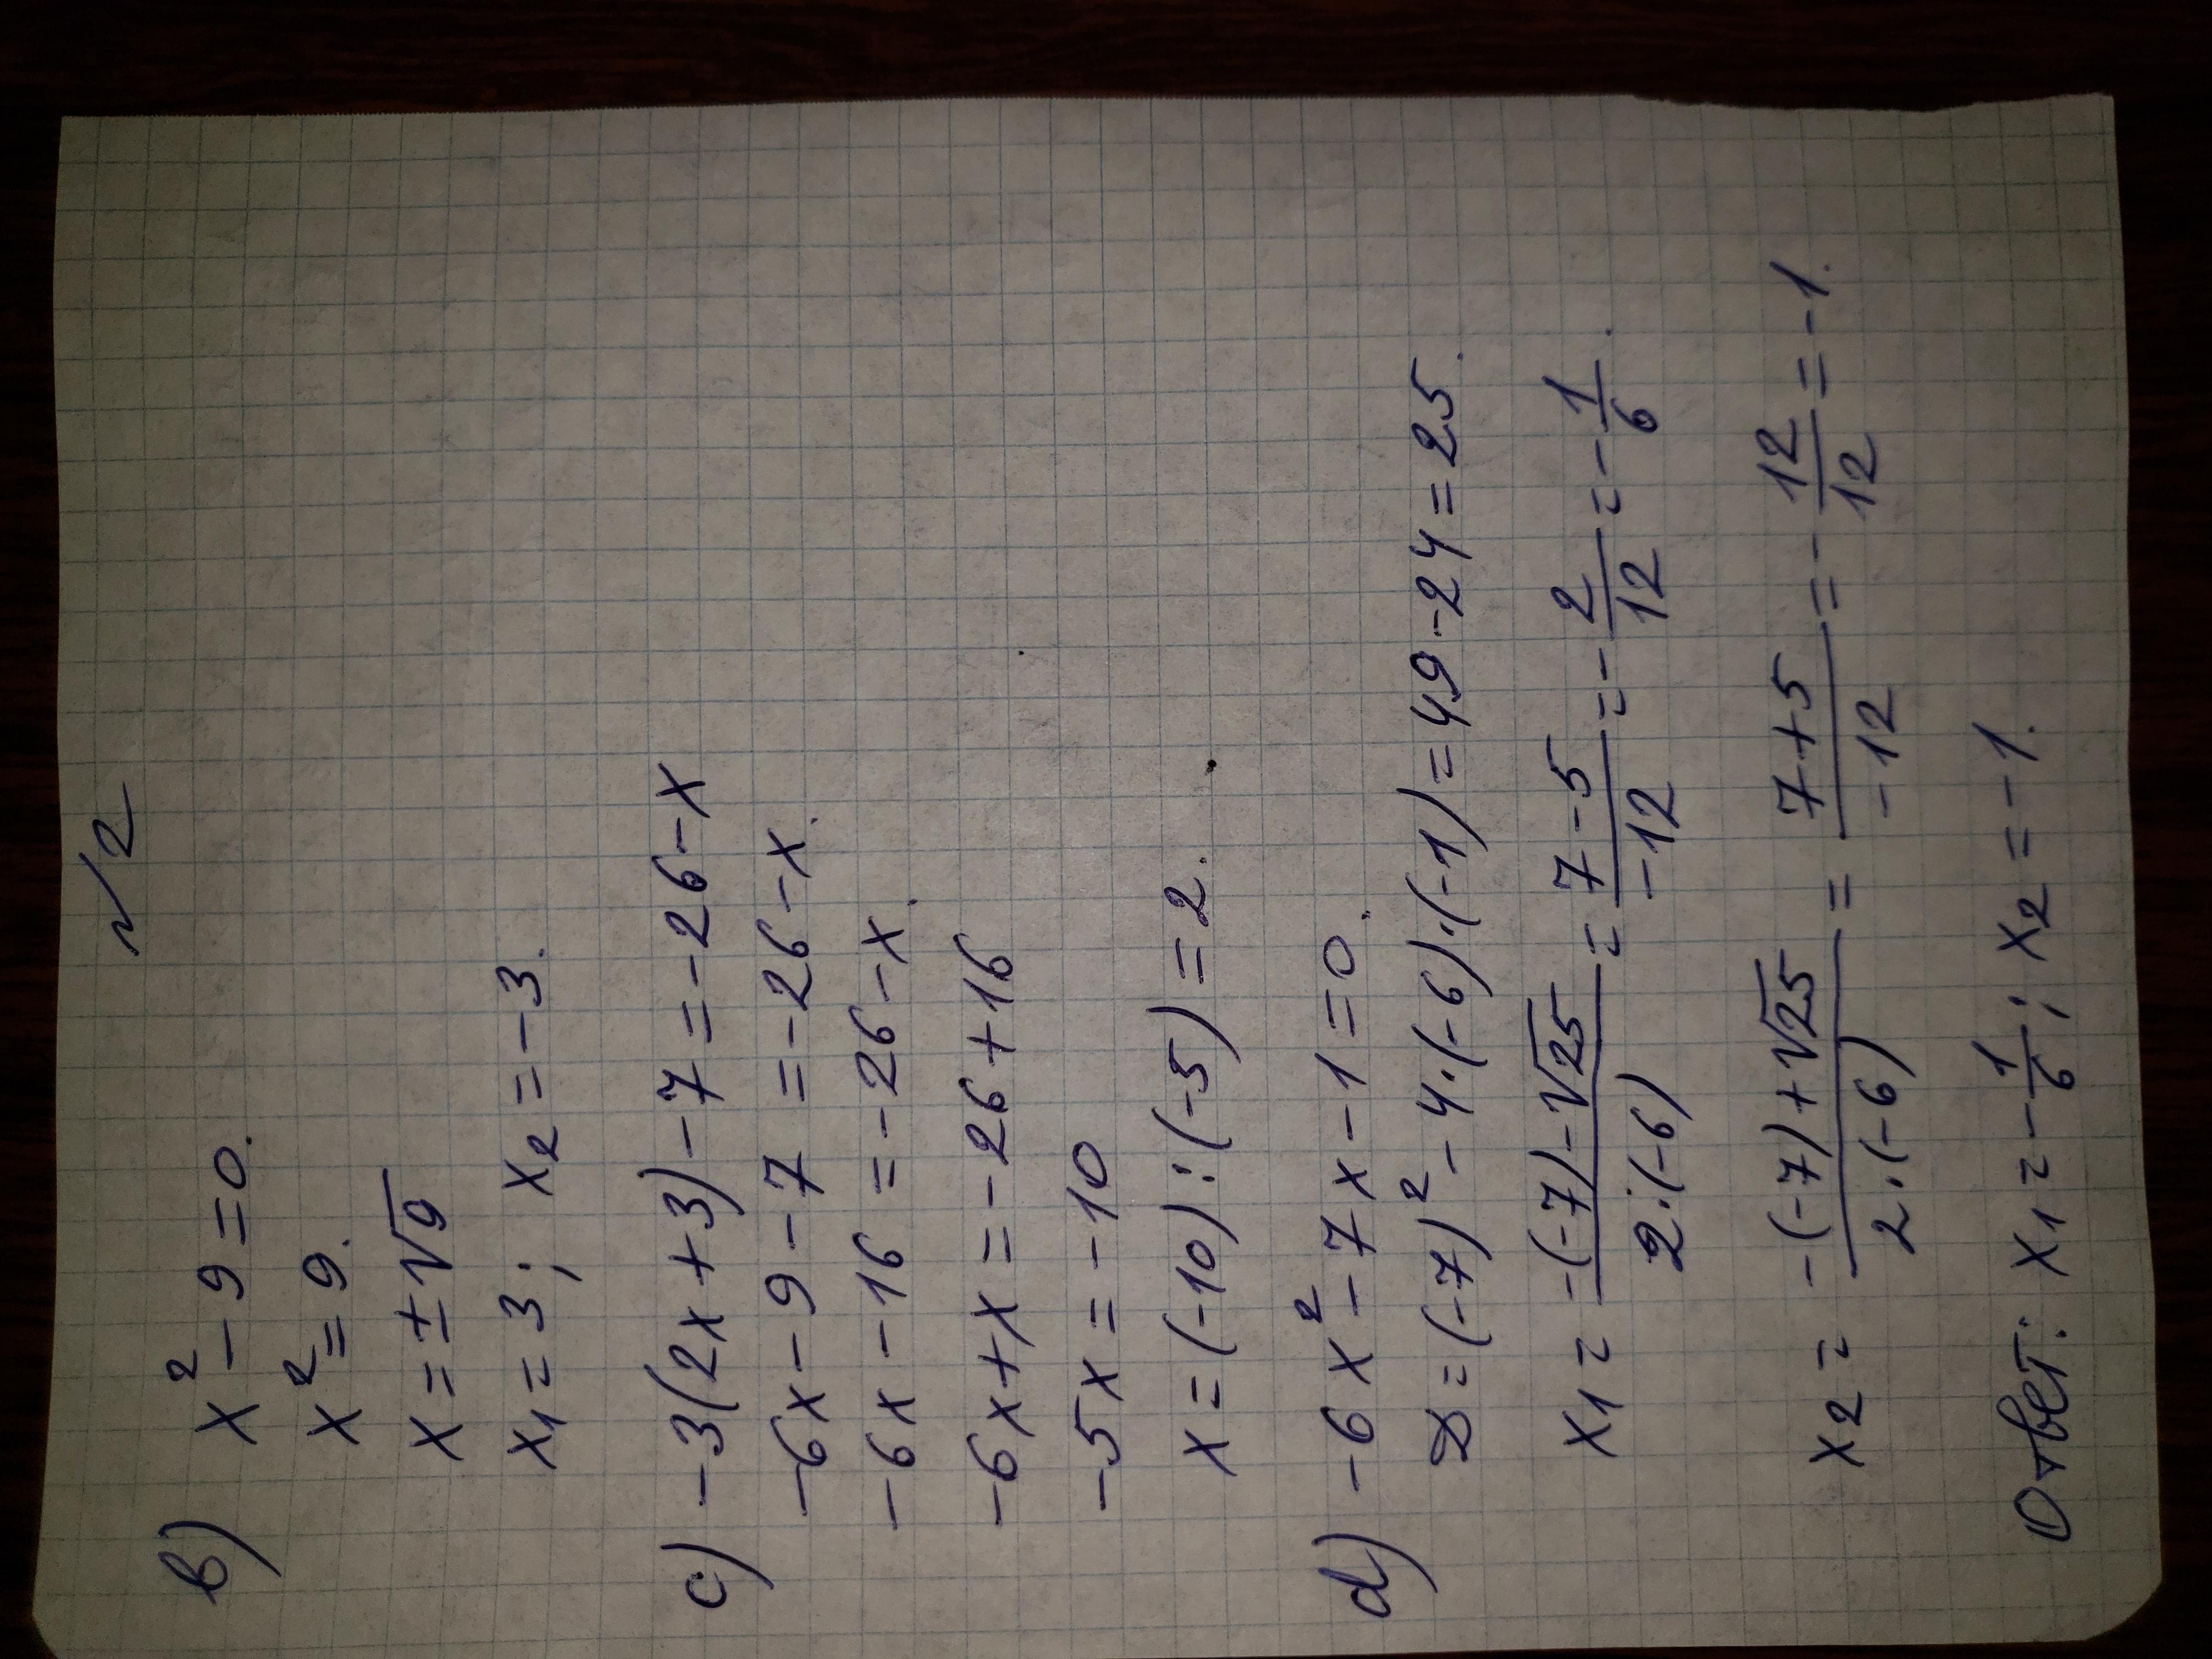 №2
в) x² - 9 = 0.
x² = 9.
x = ±√9
x₁ = 3; x₂ = -3.
c) -3(2x + 3) - 7 = -26 - x
-6x - 9 - 7 = -26 - x.
-6x - 16 = -26 - x.
-6x + x = -26 + 16
-5x = -10
x = (-10) : (-5) = 2.
d) -6x² - 7x - 1 = 0.
D = (-7)² - 4·(-6)·(-1) = 49 - 24 = 25.
x₁ = (-(-7) - √25)/(2·(-6)) = (7 - 5)/(-12) = -2/12 = -1/6.
x₂ = (-(-7) + √25)/(2·(-6)) = (7 + 5)/(-12) = -12/12 = -1.
Ответ: x₁ = -1/6; x₂ = -1.